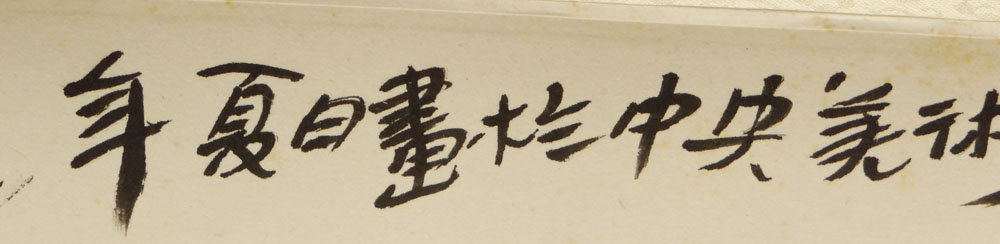 年夏日畫於中央美術